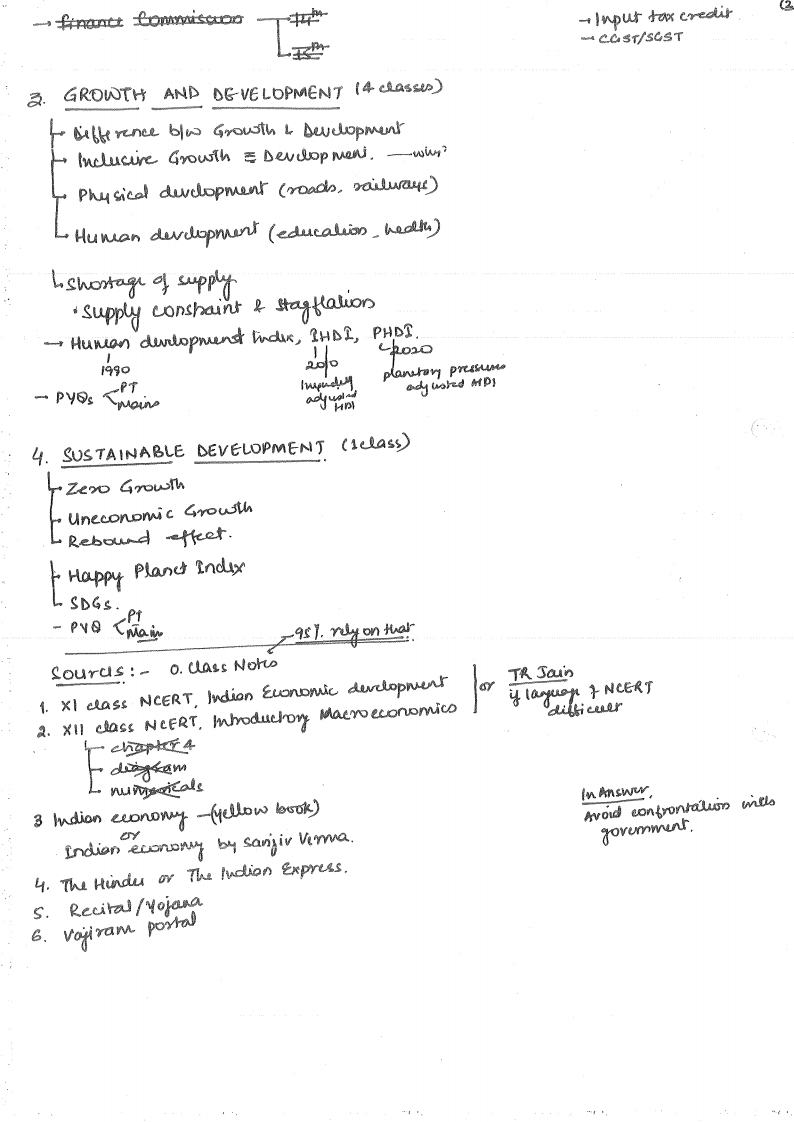 (3
→ Finance Commission 14th
15th
→ Input tax credit
→ CGST/SGST
3. GROWTH AND DEVELOPMENT (4 classes)
→ Difference b/w Growth & Development
→ Inclusive Growth ≡ Development. — why?
→ Physical development (roads, railways)
→ Human development (education, health)
↳ Shortage of supply
• Supply constraint & stagflation
→ Human development Index, IHDI, PHDI.
1990 2010 2020
Inequality adjusted HDI
planetary pressures adjusted HDI
→ PYQs PT
Mains
4. SUSTAINABLE DEVELOPMENT (1 class)
→ Zero Growth
→ Uneconomic Growth
→ Rebound effect.
→ Happy Planet Index
→ SDGs.
- PYQ PT
Main
95% rely on that
Sources :- 0. Class Notes
1. XI class NCERT, Indian Economic development
2. XII class NCERT, Introductory Macroeconomics
or TR Jain
if language of NCERT
difficult
chapter 4
diagram
numericals
3 Indian economy - (yellow book)
or
Indian economy by Sanjiv Verma.
In Answer,
Avoid confrontation with
government.
4. The Hindu or The Indian Express.
5. Recital/Yojana
6. Vajiram portal